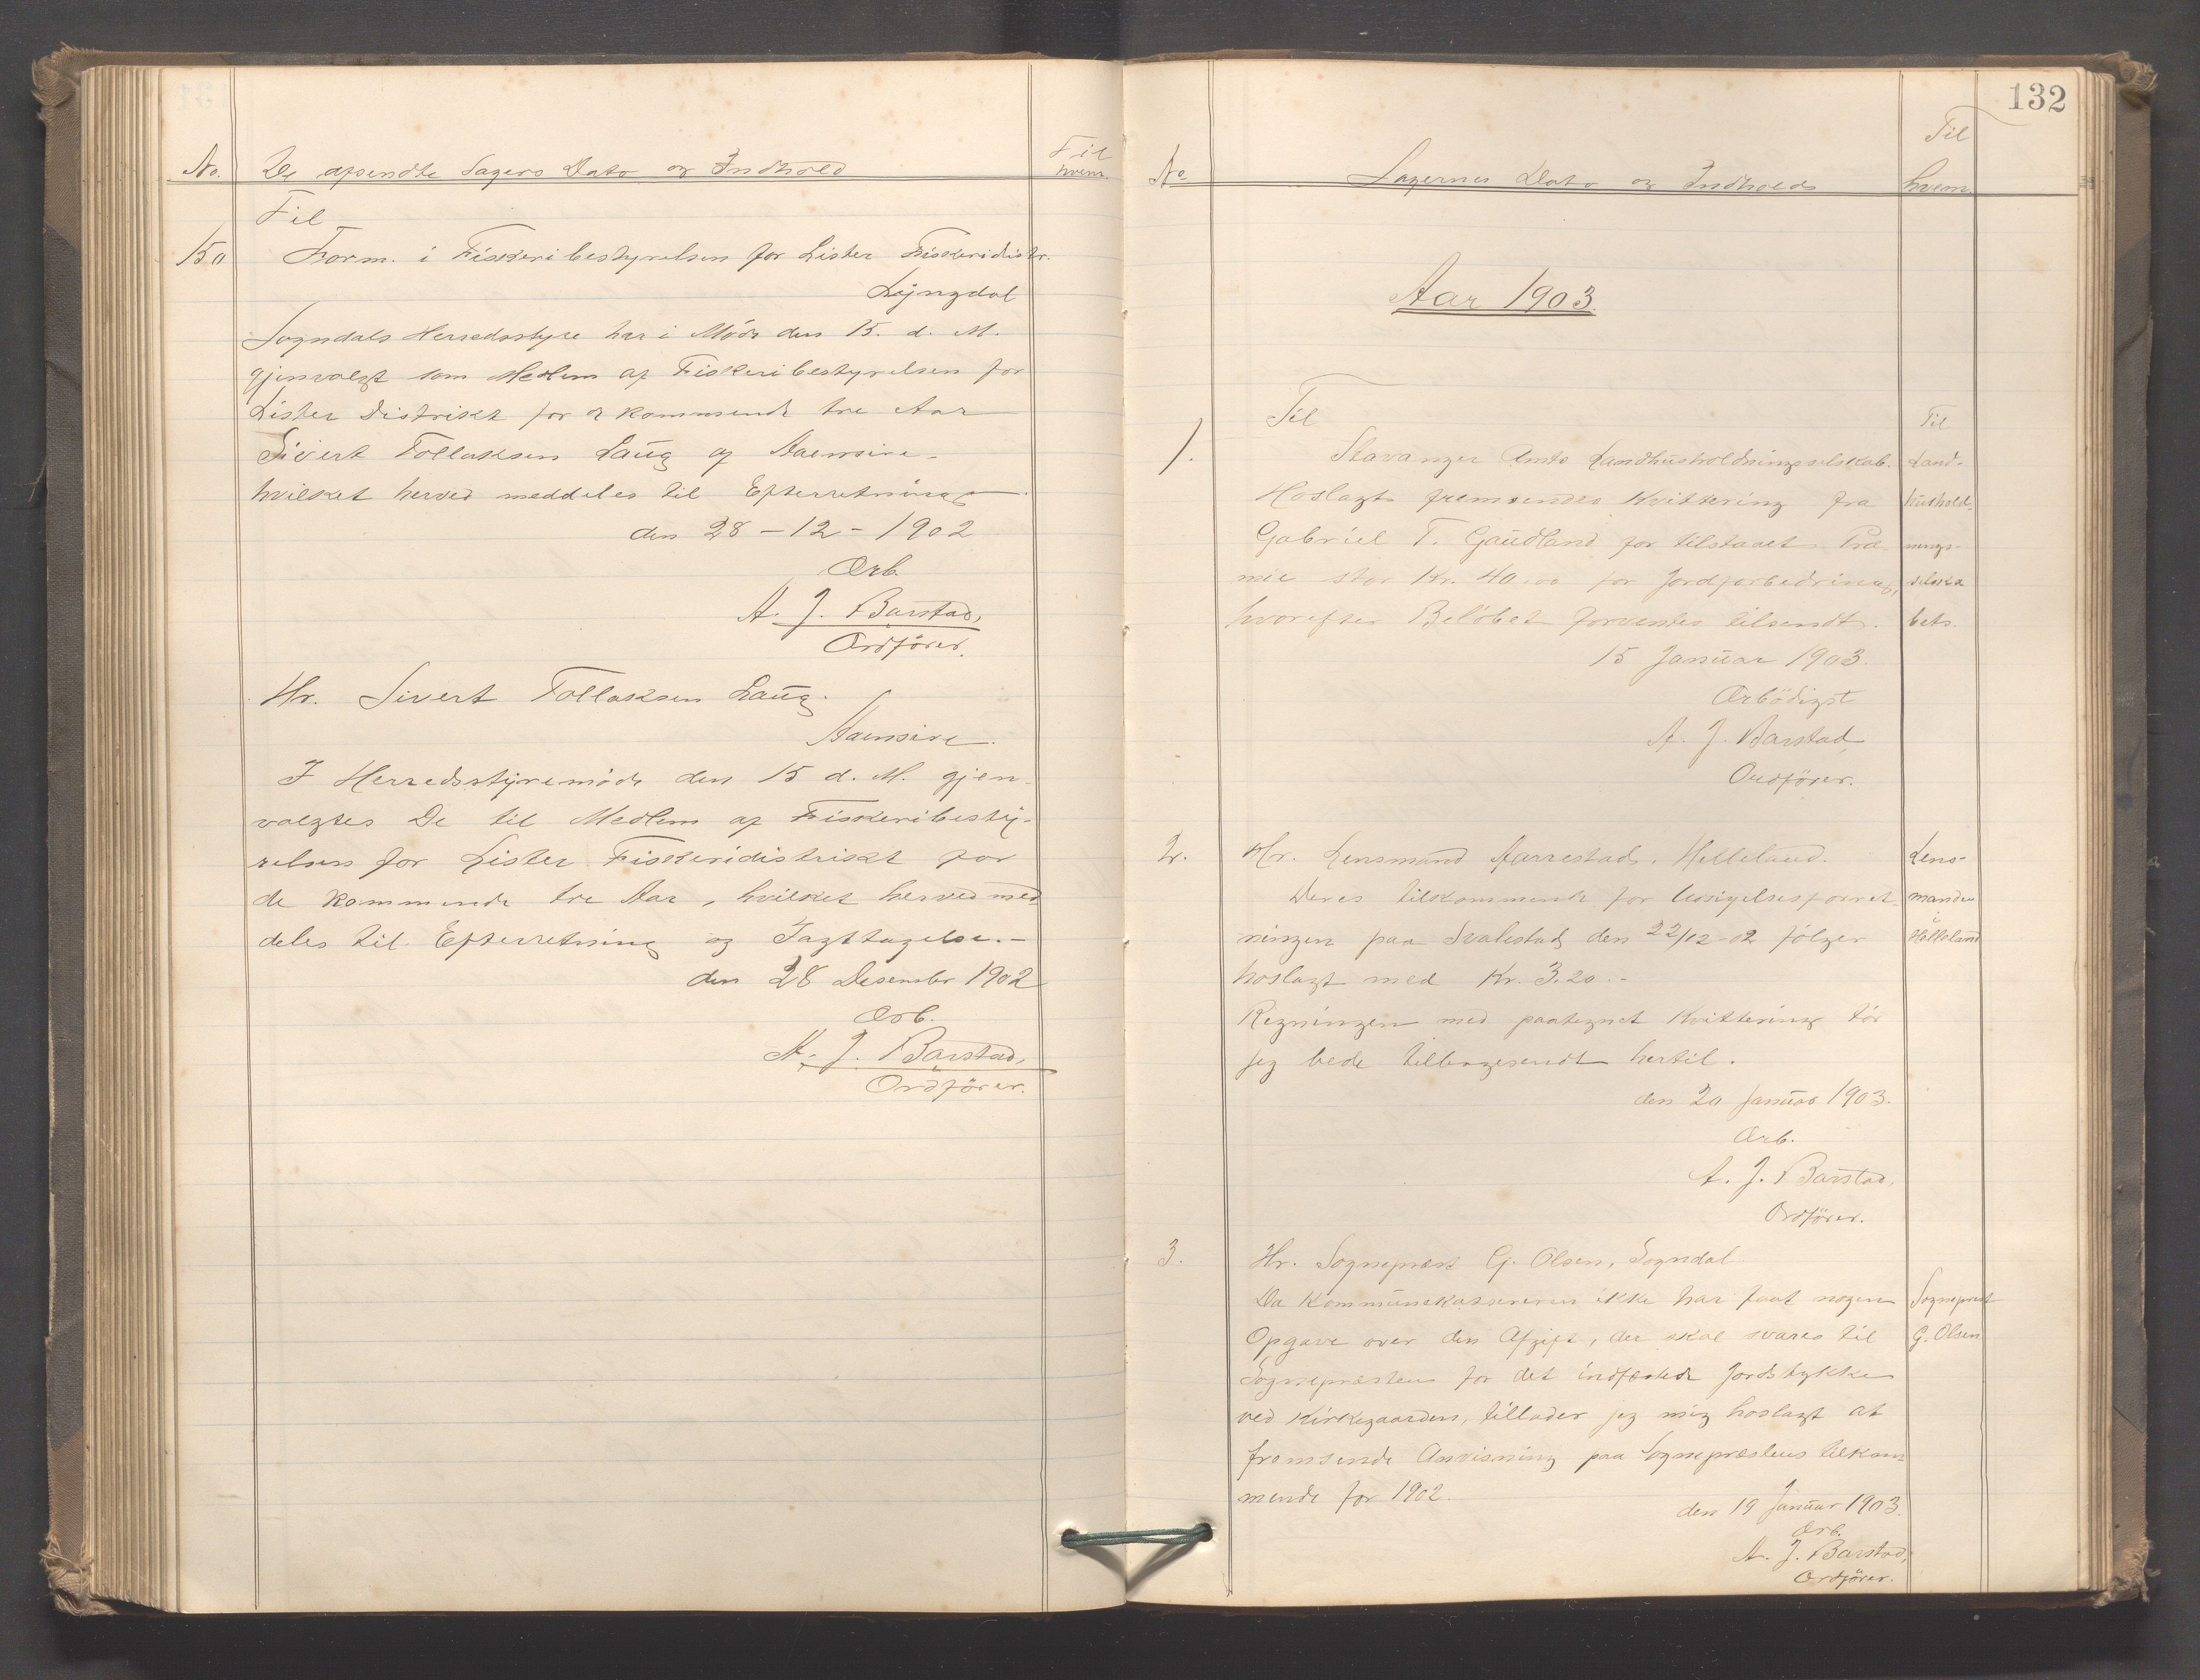 No. De afsendte Sagers Dato og Indhold Til hvem.
Til
150 Form. i Fiskeribestyrelsen for Lister Fiskeridistr.
Lyngdal
Sogndals Herredsstyre har i Möde den 15. d. M.
gjenvalgt som Medlem af Fiskeribestyrelsen for
Lister Distrikt for de kommende tre Aar
Sivert Tollaksen Laug af Aaensire.
hvilket herved meddeles til Efterretning.
den 28 - 12 - 1902
Ærb.
A. J. Barstad,
Ordförer.
Hr. Sivert Tollaksen Laug.
Aaensire.
I Herredsstyremöde den 15 d. M. gjen-
valgtes De til Medlem af Fiskeribesty-
relsen for Lister Fiskeridistrikt for
de kommende tre Aar, hvilket herved med
deles til Efterretning og Iagttagelse.-
den 28 Desember 1902
Ærb.
A. J. Barstad,
Ordförer.
132
No Sagernes Dato og Indhold Til hvem.
Aar 1903.
Til
1. Stavanger Amts Landhusholdningsselskab.
Hoslagt fremsendes Kvittering fra
Gabriel T. Gaudland for tilstaaet Præ
mie stor Kr. 40.00 for Jordforbedring,
hvorefter Belöbet forventes tilsendt.
15 Januar 1903.
Ærbödigst
A. J. Barstad,
Ordförer.
Til
Land-
hushold-
nings-
selska
bets.
2. Hr. Lensmand Aarrestad, Helleland.
Deres tilkommende for Udsigelsesforret-
ningen paa Svalestad den 22/12 02 fölger
hoslagt med Kr. 3.20.-
Regningen med paategnet Kvittering tör
jeg bede tilbagesendt hertil.
den 20 Januar 1903.
Ærb.
A. J. Barstad,
Ordförer.
Lens-
manden
i
Helleland
3. Hr. Sogneprest G. Olsen, Sogndal.
Da Kommunekassereren ikke har faat nogen
Opgave over den Afgift, der skal svares til
Sognepræsten for det indfæstede Jordstykke
ved Kirkegaarden, tillader jeg mig hoslagt at
fremsende Anvisning paa Sognepræstens tilkom
mende for 1902.
den 19 Januar 1903.
Ærb.
A. J. Barstad,
Ordförer.
Sogneprest
G. Olsen